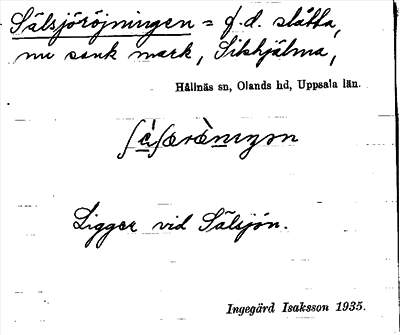 Sälsjöröjningen = f.d. slåtta,
nu sank mark, Sikhjälma,
Hållnäs sn, Olands hd, Uppsala län.
Ligger vid Sälsjön.
Ingegärd Isaksson 1935.